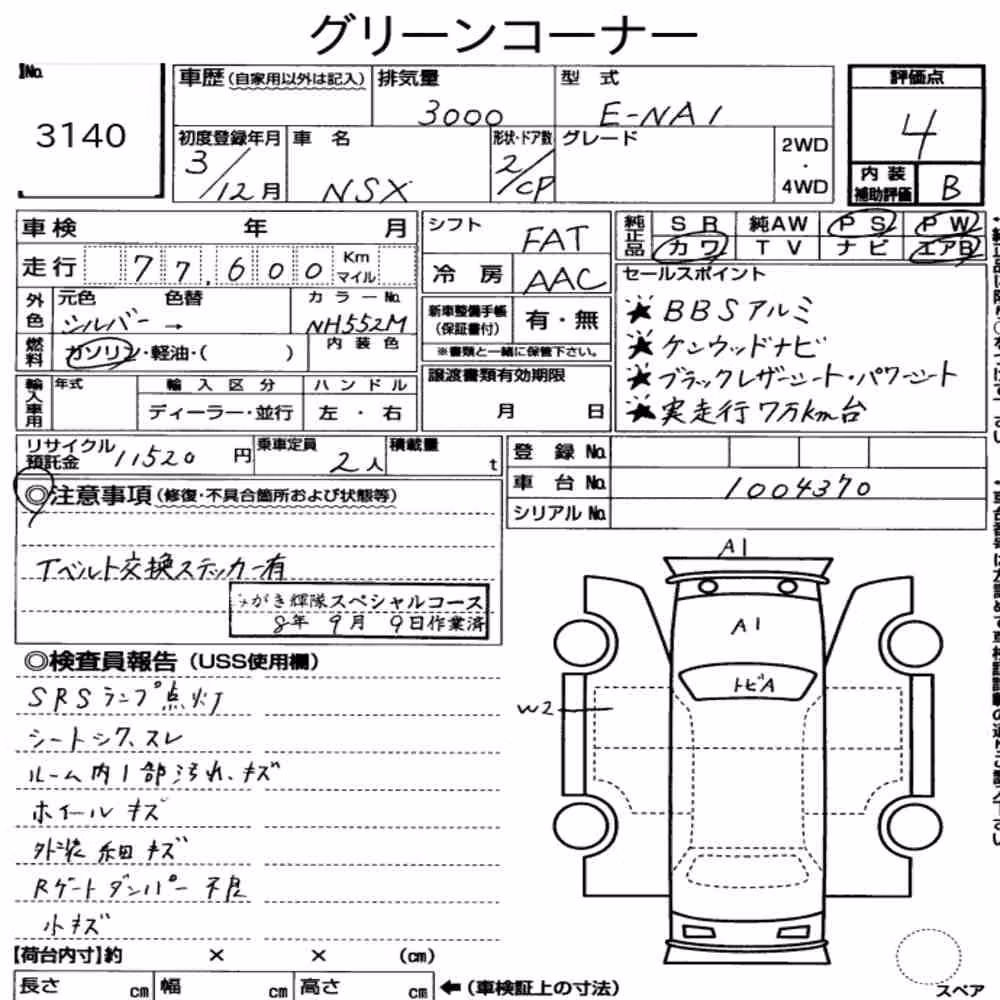 グリーンコーナー
No.
3140
車歴(自家用以外は記入)
排気量
3000
型式
E-NA1
評価点
4
初度登録年月
3/12月
車名
NSX
形状・ドア数
2/CP
グレード
2WD
・
4WD
内装
補助評価
B
車検 年 月
シフト
FAT
純正品
SR 純AW PS PW
カワ TV ナビ エアB
走行 77,600 Km
マイル
冷房
AAC
セールスポイント
★BBSアルミ
★ケンウッドナビ
★ブラックレザーシート・パワーシート
★実走行7万km台
外色
元色 色替
シルバー →
カラーNo.
NH552M
新車整備手帳
(保証書付)
有・無
※書類と一緒に保管下さい。
燃料
ガソリン・軽油・( )
内装色
輸入車用
年式
輸入区分
ディーラー・並行
ハンドル
左・右
譲渡書類有効期限
月 日
リサイクル
預託金 11520 円
乗車定員
2人
積載量
t
登録No.
車台No. 1004370
シリアルNo.
◎注意事項(修復・不具合箇所および状態等)
Tベルト交換ステッカー有
みがき輝隊スペシャルコース
8年 9月 9日作業済
◎検査員報告(USS使用欄)
SRSランプ点灯
シートシワ、スレ
ルーム内1部汚れ、キズ
ホイールキズ
外装細キズ
Rゲートダンパー不良
小キズ
A1
A1
トビA
W2
【荷台内寸】約 × × (cm)
長さ cm 幅 cm 高さ cm ←(車検証上の寸法)
スペア